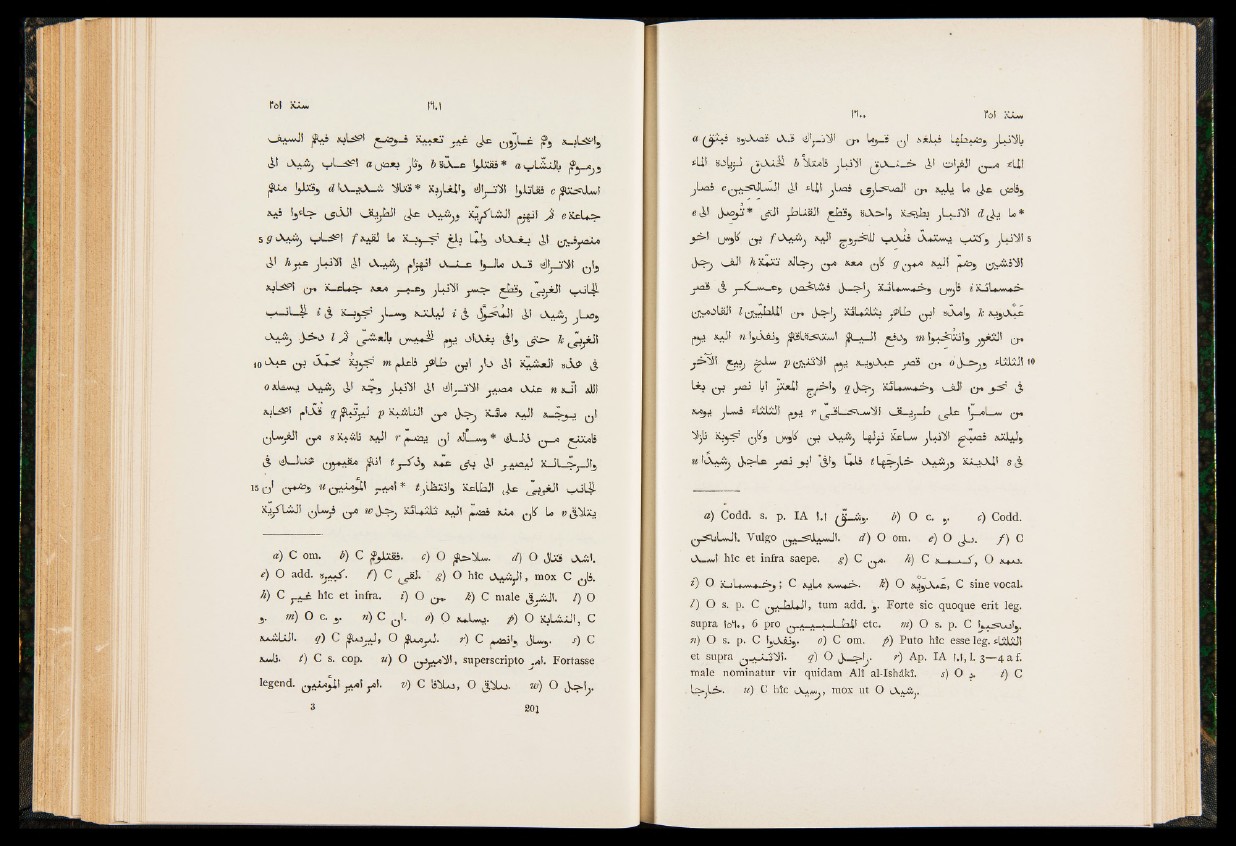 سنة ٢٥١ ١٦٠٠
بالانبار وضبطها فبلغه ان قوما من الاتراك قد قصدوه فبثق a
الماء من الفرات الى خندق الانبار b الخندق لزيادة الماء
وفاض على ما يليه من الصحارى فصار الماء الى السالحين c فصار
*ما يلى d الانبار بطيحة واحدة وقطع القناطر التى *توصل الى e
5 الانبار وكتب يستمد فندب للخروج اليه رشيد f بن كاوس اخو
الافشين وضم اليه ممن g كان معه من رجاله تتمة h الف رجل
خمسمائة i فارس وخمسمائة راجل فشخص وعسكر فى قصر
عبدويه k وامده ابن طاهر بثلثمائة رجل من الملطيين l القادمين
من الثغور وانتخبوا m ودفع اليهم استحقاقاتهم ونفذوا n اليه يوم
10 الثلثاء ورحل o من قصر عبدويه يوم الاثنين p سلخ ربيع الآخر
فى نحو من الف وخمسمائة رجل q واخرج المعتز ابا نصر بن بغا
من سامرا على طريق الاسحاقى r يوم الثلثاء فسار يومه
وليلته فصبح الانبار ساعة نزلها رشيد بن كاوس وكان نجوبة نازلا
فى s المدينة ورشيد خارجها t فلما وافى ابو نصر عاجل رشيدا u
a) Codd. s. p. IA ١.١ وشق. b) O c. و. c) Codd.
Vulgo السيلحين. d) O om. e) O يلى. f) C
اسد hîc et infra saepe. g) C من. h) C
i) O ; C خمسه مايه. k) O عبدويه, C sine vocal.
l) O s. p. C, tum add. و. Forte sic quoque erit leg.
supra ١٥٩٠, 6 pro etc. m) O s. p. C
n) O s. p. C ونقدوا. o) C om. p) Puto hîc esse leg. الثلثاء
et supra الاثنين. q) O راجل. r) Ap. IA ١.١, l. 3—4 a f.
male nominatur vir quidam Alî al-Ishâkî. s) O t) C
خارجا. u) C hîc رسيد, mox ut O رشيد.
سنة ٢٥١ ١٦٠١
واصحابه وهم غارون على غير تعبية فوضع اصحابه فيهم السيف
ورموهم بالنشاب a *فقتلوا عدة b وثار بعض a اصحاب رشيد الى
اسلحتهم c فقاتلوا الاتراك والمغاربة *قتالا شديدا d وقتلوا منهم
جماعة e ثم انهزم الشاكرية ورشيد على الطريق الذى جاءوا فيه
5 منصرفين الى بغداد ولما بلغ نجوبة ما لقيه f اصحاب رشيد g
وان الاتراك قد مالوا عند انهزام رشيد الى الانبار عبر h الى
الجانب الغربى وقطع جسر الانبار وعبر معه جماعة من اصحابه
وصار رشيد الى المحول فى i ليلته وسار نجوبة فى i الجانب
الغربى k حتى وافى بغداد يوم الخميس بالعشى ثم l دخل رشيد
10 فى هذه العشية الى دار ابن طاهر فاعلم m نجوبة محمد بن عبد
الله انه n عند مصير الاتراك الى الانبار وجه الى رشيد يسئله o
ان يوجه اليه مائة رجل من الناشبة p ليرتبهم q قدام اصحابه
فامتنع من ذلك *وسأله ان يضم r اليه ناشبة s من الفرسان
والرجالة ليصير الى بنى عمه وذكر t انهم مقيمون هنالك فى
15 الجانب الغربى على الطاعة وانتظار t *امير المؤمنين u وضمن ان
يتلافى v ما كان منه فضم اليه ثلثمائة رجل w من فرسان الشاكرية
a) C om. b) C فقتلوهم. c) O سلاحهم. d) O قتال اشد.
e) O add. كبيره. f) C لقى. g) O hîc الرشيد, mox C فان.
h) C غير hîc et infra. i) O من. k) C male الشرقى. l) O
و. m) O c. و. n) C ان. o) O يسلمه. p) O النشابة, C
الناشبه. q) C, O r) C وسال وامضى. s) C
t) C s. cop. u) O, superscripto امر. Fortasse
legend. امر امير المؤمنين. v) C O w) O راجل.
3 201